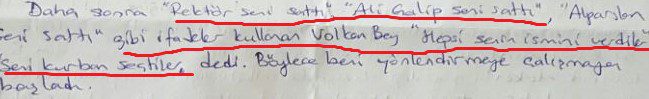 Daha sonra "Rektör seni sattı", "Ali Galip seni sattı", "Alparslan
seni sattı" gibi ifadeler kullanan Volkan Bey "Hepsi senin ismini verdiler
Seni kurban seçtiler, dedi. Böylece beni yönlendirmeye çalışmaya
başladı.